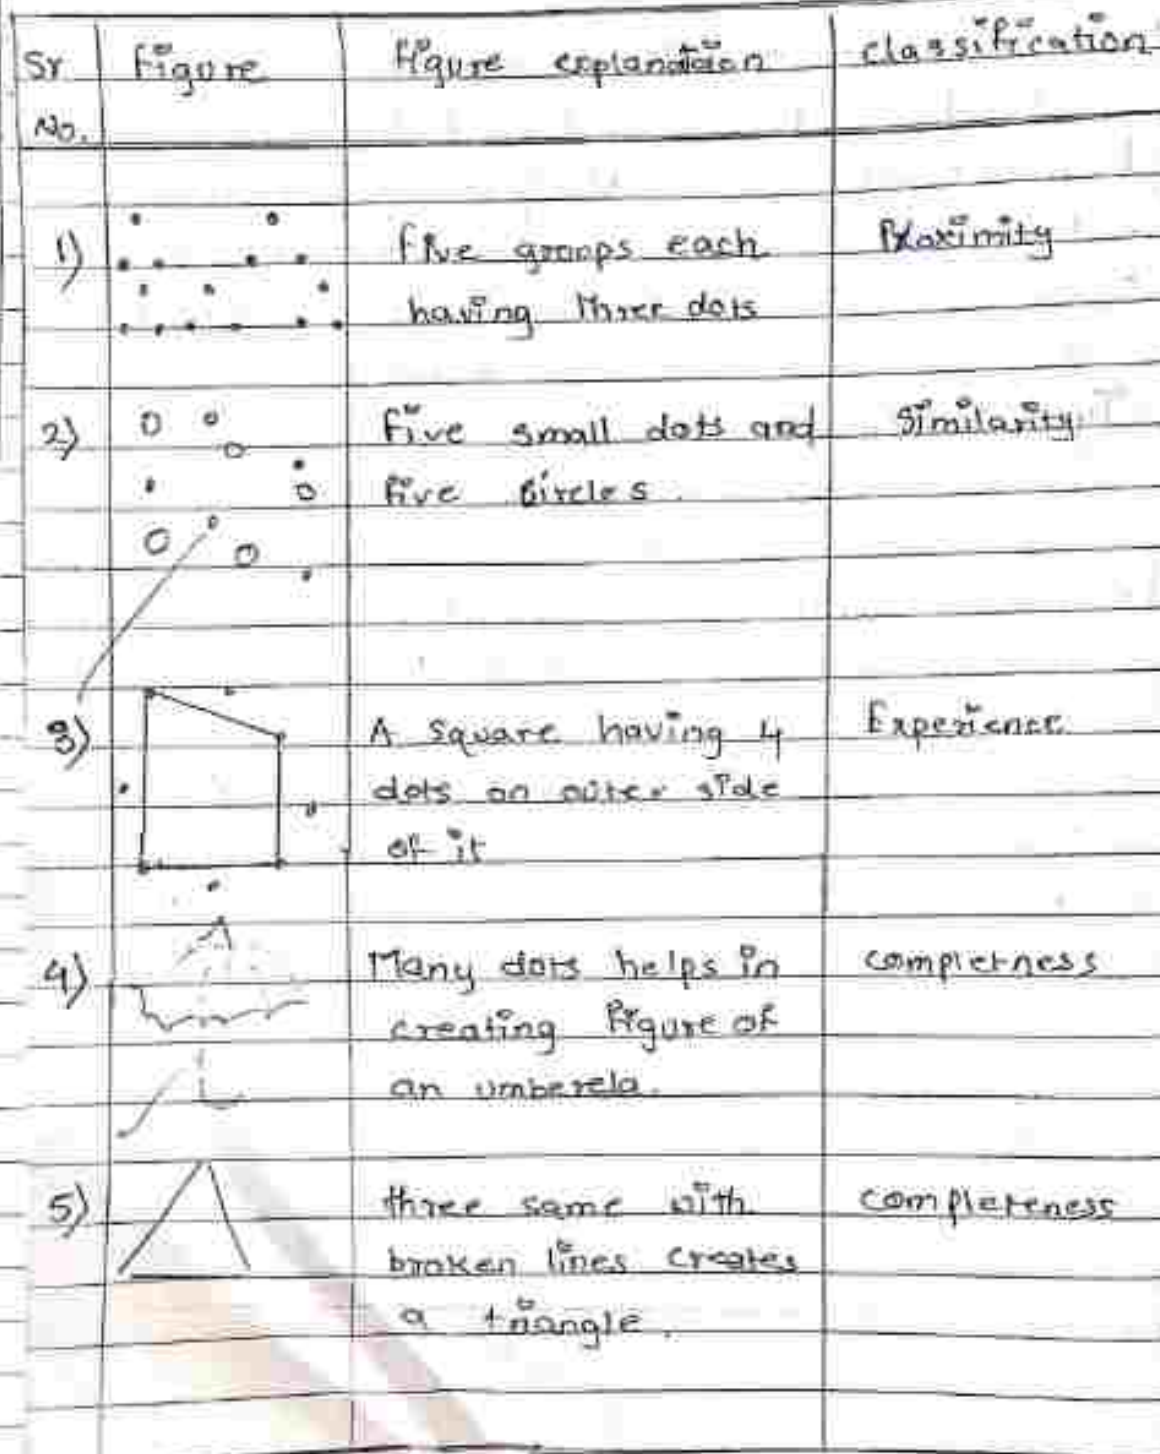 Sr No.
Figure
Figure explanation
classification
1)
five groups each
having three dots
Proximity
2)
five small dots and
five circles.
Similarity
3)
A square having 4
dots on outer side
of it
Experience
4)
Many dots helps in
creating figure of
an umberela.
completness
5)
three same with
broken lines creates
a triangle.
completeness